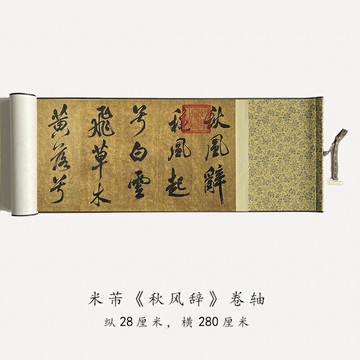 秋風辭
秋風起
兮白雲
飛草木
黃落兮
米芾《秋风辞》卷轴
纵28厘米，横280厘米